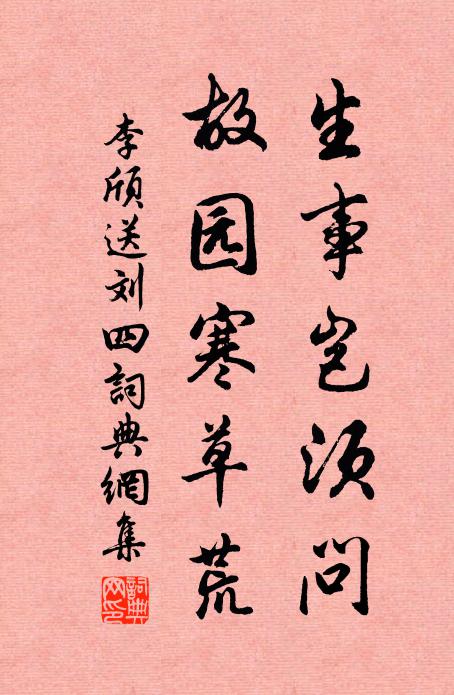 生事岂须问
故园寒草荒
李颀送刘四詞典網集
詞典网印